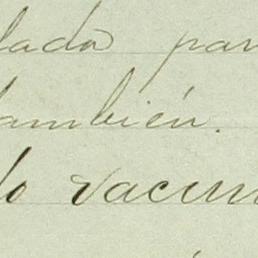 lado par
también.
do vacun